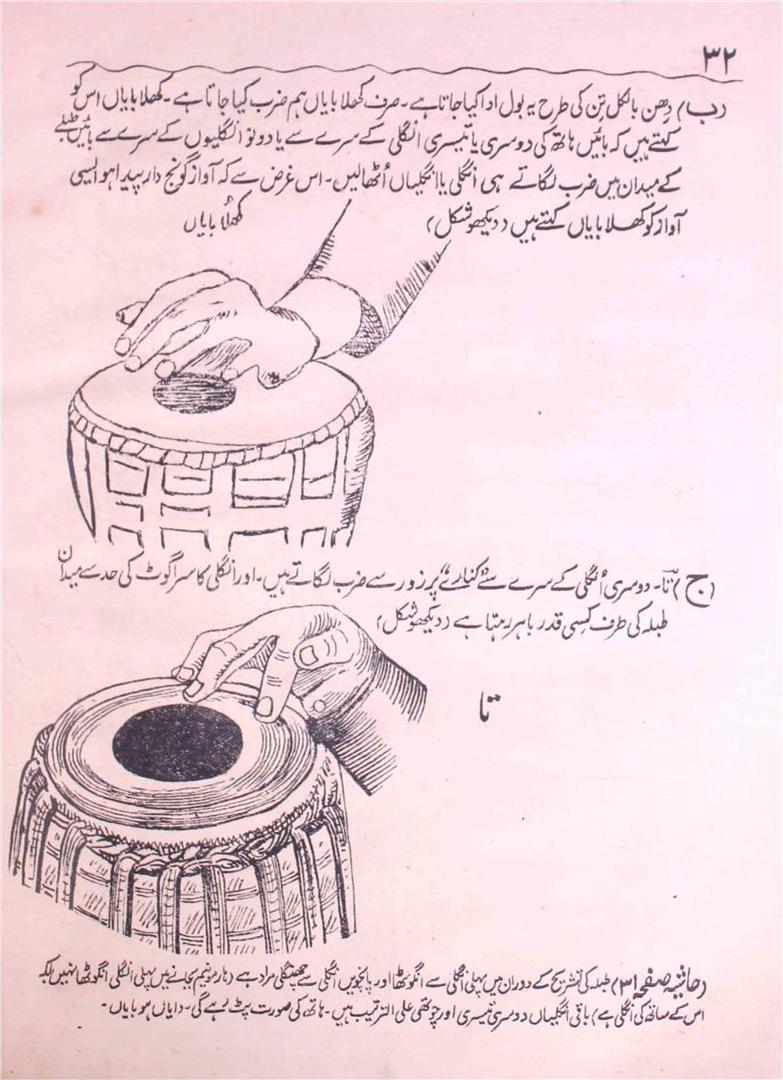 ۳۲
(ب) دِھن بالکل تِن کی طرح یہ بول ادا کیا جاتا ہے۔ صرف کھلا بایاں ہم ضرب کیا جاتا ہے۔ کھلا بایاں اس کو
کہتے ہیں کہ بائیں ہاتھ کی دوسری یا تیسری انگلی کے سرے سے یا دونو انگلیوں کے سرے سے بائیں طبلے
کے میدان میں ضرب لگاتے ہی انگلی یا انگلیاں اُٹھالیں۔ اس غرض سے کہ آواز گونج دار پیدا ہو ایسی
آواز کو کھلا بایاں کہتے ہیں (دیکھو شکل)
کھُلا بایاں
(ج) تا۔ دوسری اُنگلی کے سرے سے "کنارے" پر زور سے ضرب لگاتے ہیں۔ اور انگلی کا سرا گوٹ کی حد سے میدان
طبلہ کی طرف کسی قدر باہر رہتا ہے (دیکھو شکل)
تا
(حاشیہ صفحہ ۳۱) طبلہ کی تشریح کے دوران میں پہلی انگلی سے انگوٹھا اور پانچویں انگلی سے چھنگلی مراد ہے (ہارمونیم بجانے میں پہلی انگلی انگوٹھا نہیں بلکہ
اس کے ساتھ کی انگلی ہے) باقی انگلیاں دوسری تیسری اور چوتھی علی الترتیب ہیں۔ ہاتھ کی صورت پٹ رہے گی۔ دایاں ہو یا بایاں۔